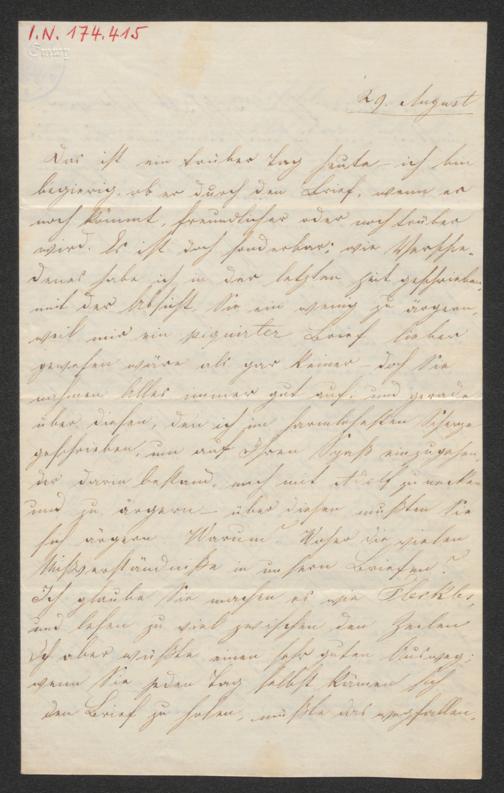 I.N. 174.415
29. August
Das ist ein trüber Tag heute – ich bin
begierig, ob er durch den Brief, wenn er
noch kömmt, freundlicher oder noch trüber
wird. Es ist doch sonderbar; wie Verschie-
denes habe ich in der letzten Zeit geschrieben
mit der Absicht, Sie ein wenig zu ärgern,
weil mir ein piquirter Brief lieber
gewesen wäre als gar keiner doch Sie
nahmen Alles immer gut auf, und gerade
über diesen, den ich im harmlosesten Scherze
geschrieben, um auf Ihren Spaß einzugehen,
der darin bestand, mich mit Adolf zu necken
und zu ärgern – über diesen mußten Sie
sich ärgern Warum? Woher die vielen
Mißverständniße in unsern Briefen?
Ich glaube Sie machen es wie Fleckles,
und lesen zu viel zwischen den Zeilen
Ich aber wüßte einen sehr guten Ausweg;
wenn Sie jeden Tag selbst kämen sich
den Brief zu holen, müßte das wegfallen.